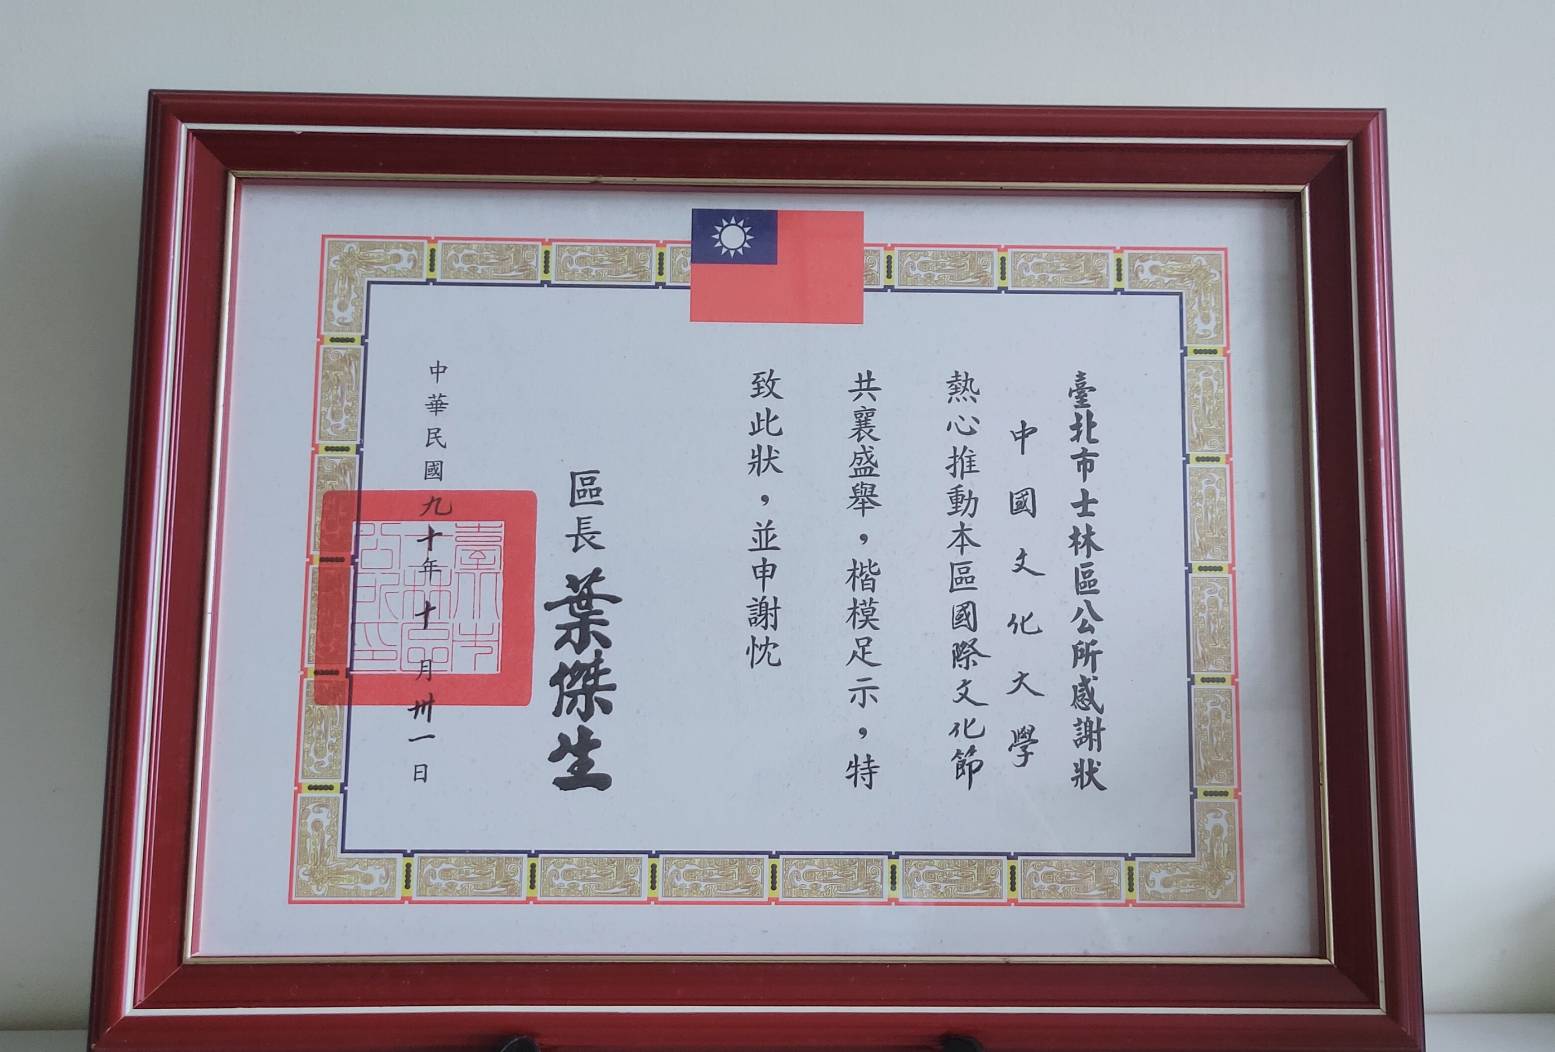 臺北市士林區公所感謝狀
中國文化大學
熱心推動本區國際文化節
共襄盛舉，楷模足示，特
致此狀，並申謝忱
區長 葉傑生
中華民國九十年十月卅一日
臺北市士林區公所印